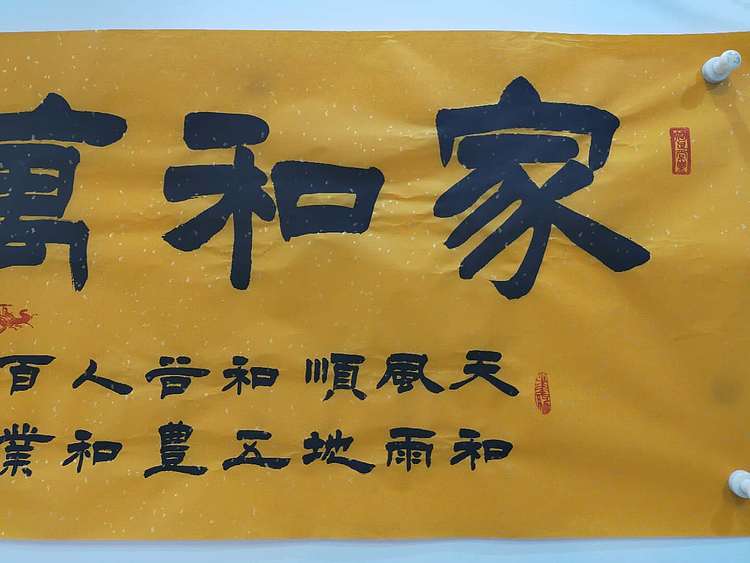 家和萬
天和
風雨
順地
和五
谷豊
人和
百業